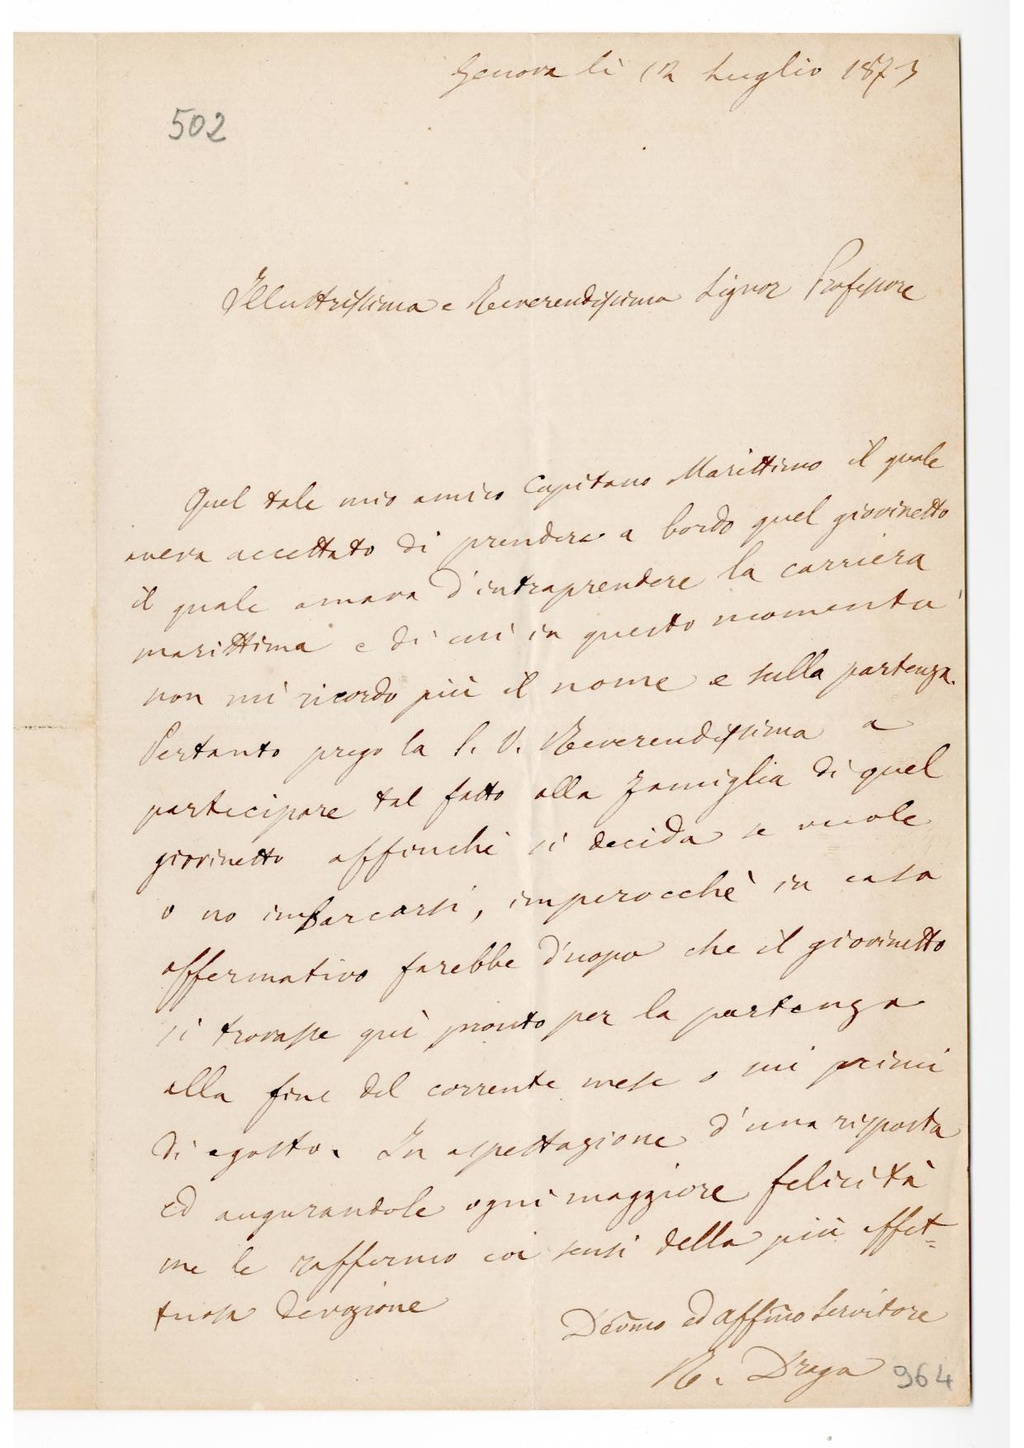 Genova li 12 Luglio 1873
502
Illustrissimo e Reverendissimo Signor Professore
Quel tale mio amico Capitano Marittimo il quale
aveva accettato di prendere a bordo quel giovinetto
il quale amava d'intraprendere la carriera
marittima e di cui in questo momento
non mi ricordo più il nome e sulla partenza.
Pertanto prego la S. V. Reverendissima a
partecipare tal fatto alla famiglia di quel
giovinetto affinchè si decida se vuole
o no imbarcarsi, imperocchè in caso
affermativo farebbe d'uopo che il giovinetto
si trovasse quì pronto per la partenza
alla fine del corrente mese o nei primi
di agosto. In aspettazione d'una risposta
ed augurandole ogni maggiore felicità
me le raffermo coi sensi della più affet=
tuosa devozione
Devmo ed Affmo Servitore
N. Drago
964